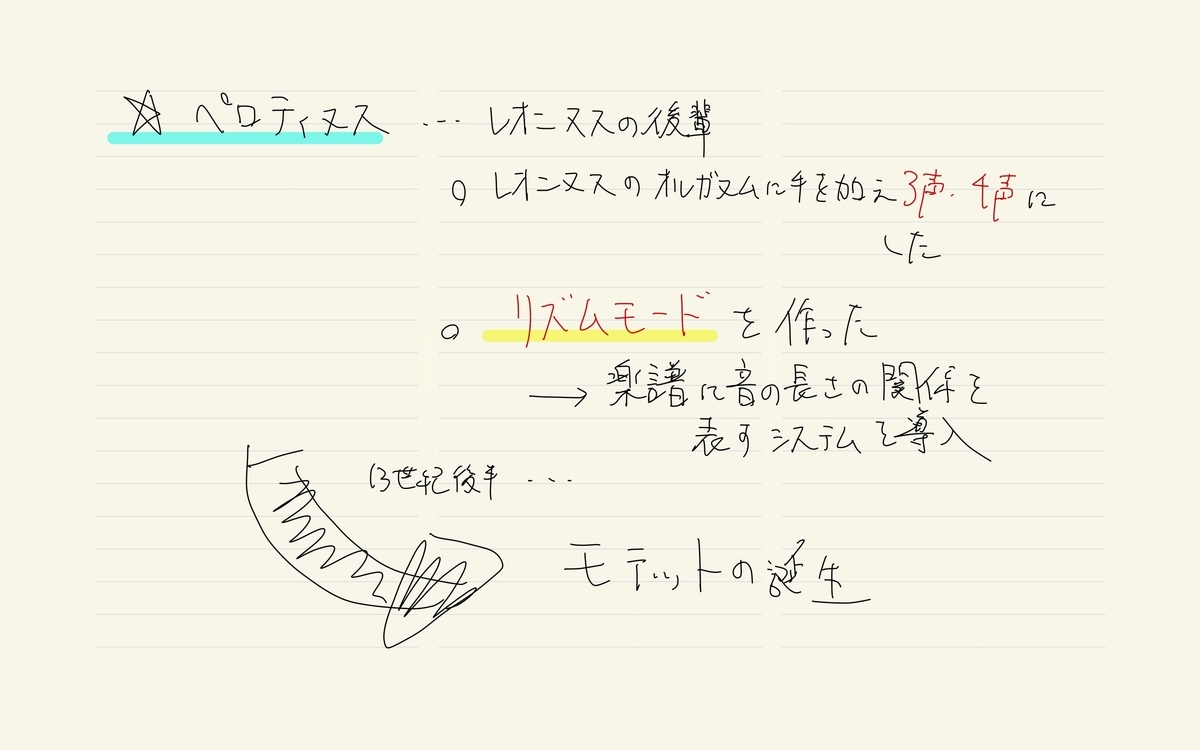 ☆ ペロティヌス … レオニヌスの後輩
○ レオニヌスのオルガヌムに手を加え3声・4声に
した
○ リズムモードを作った
→ 楽譜に音の長さの関係を
表すシステムを導入
13世紀後半 …
モテットの誕生